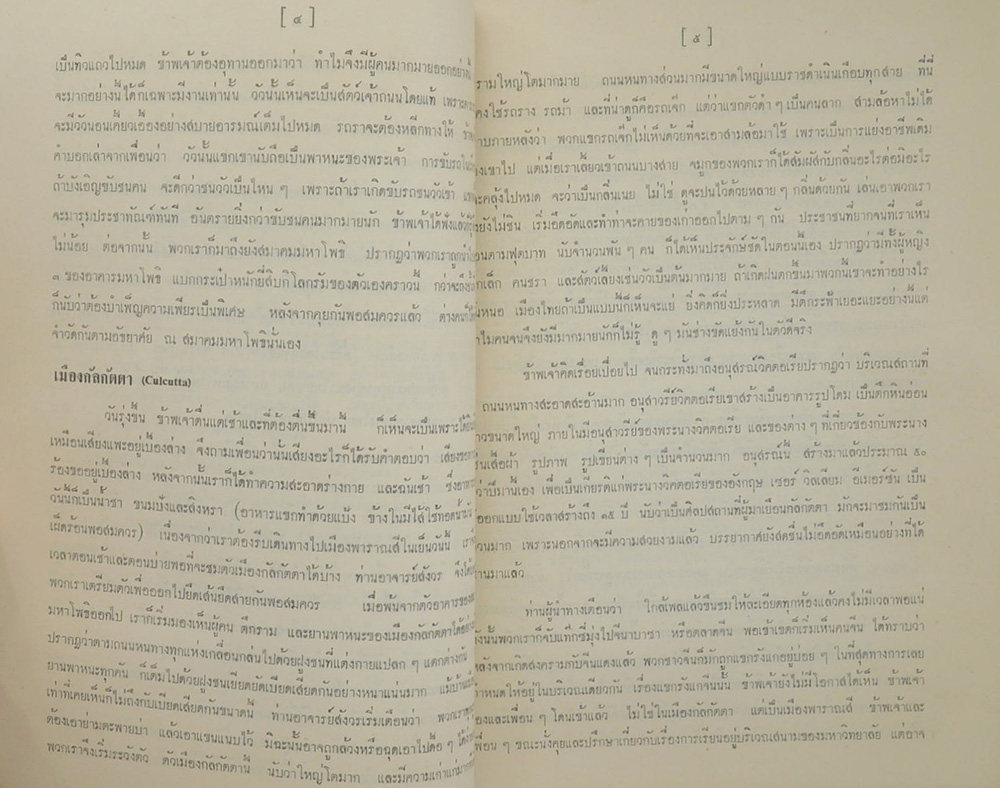 [ ๔ ]
เป็นทิวแถวไปหมด ข้าพเจ้าต้องอุทานออกมาว่า ทำไมจึงมีผู้คนมากมายออกอย่างนี้
จะมากอย่างนี้ได้ก็เฉพาะมีงานเท่านั้น วัวนั้นเห็นจะเป็นสัตว์เจ้าถนนโดยแท้ เพราะตาม
จะมีวัวนอนเคี้ยวเอื้องอย่างสบายอารมณ์เต็มไปหมด รถราจะต้องหลีกทางให้
คำบอกเล่าจากเพื่อนว่า วัวนั้นแขกเขานับถือเป็นพาหนะของพระเจ้า การขับรถใน
ถ้าบังเอิญขับชนคน จะดีกว่าชนวัวเป็นไหน ๆ เพราะถ้าเราเกิดขับรถชนวัวเข้า
จะมารุมประชาทัณฑ์ทันที อันตรายยิ่งกว่าขับชนคนมากมายนัก ข้าพเจ้าได้ฟังแล้ว
ไม่น้อย ต่อจากนั้น พวกเราก็มาถึงยังสมาคมมหาโพธิ ปรากฏว่าพวกเราถูก
๓ ของอาคารมหาโพธิ แบกกระเป๋าหนักยี่สิบกิโลกรัมของตัวเองคราวนี้ กว่าจะถึง
ก็นับว่าต้องบำเพ็ญความเพียรเป็นพิเศษ หลังจากคุยกันพอสมควรแล้ว ต่างคน
จำวัดกันตามอัธยาศัย ณ สมาคมมหาโพธินั่นเอง
เมืองกัลกัตตา (Culcutta)
วันรุ่งขึ้น ข้าพเจ้าตื่นแต่เช้าและที่ต้องตื่นขึ้นมานั้น ก็เห็นจะเป็นเพราะได้ยิน
เหมือนเสียงแพะอยู่เบื้องล่าง จึงถามเพื่อนว่านั่นเสียงอะไรก็ได้รับคำตอบว่า เสียง
ร้องขออยู่เบื้องล่าง หลังจากนั้นเราก็ได้ทำความสะอาดร่างกาย และฉันเช้า ซึ่งอาหาร
วันนี้ก็เป็นน้ำชา ขนมปังและสิงหรา (อาหารแขกทำด้วยแป้ง ข้างในมีไส้ใช้ทอด
เผ็ดร้อนพอสมควร) เนื่องจากว่าเราต้องรีบเดินทางไปเมืองพาราณสีในเย็นวันนี้
เวลาตอนเช้าและตอนบ่ายพอที่จะชมตัวเมืองกัลกัตตาได้บ้าง ท่านอาจารย์สังวร จึงได้
พวกเราเตรียมตัวเพื่อออกไปยืดเส้นยืดสายกันพอสมควร เมื่อพ้นจากตัวอาคารของ
มหาโพธิออกไป เราก็เริ่มมองเห็นผู้คน ตึกราม และยานพาหนะของเมืองกัลกัตตาได้
ปรากฏว่าตามถนนหนทางทุกแห่งเกลื่อนกล่นไปด้วยฝูงชนที่แต่งกายแปลก ๆ แตกต่างกัน
ยานพาหนะทุกคัน ก็เต็มไปด้วยฝูงชนเยียดยัดเบียดเสียดกันอย่างหนาแน่นมาก แม้
เท่าที่เคยเห็นก็ไม่ถึงกับเบียดเสียดกันขนาดนี้ ท่านอาจารย์สังวรเริ่มเตือนว่า พวกเรา
ต้องเอาย่ามตะพายบ่า แล้วเอาแขนแนบไว้ มิฉะนั้นอาจถูกล้วงหรือฉุดเอาไปดื้อ ๆ ได้
พวกเราจึงเริ่มระวังตัว ตัวเมืองกัลกัตตานี้ นับว่าใหญ่โตมาก และมีความเก่าแก่
[ ๕ ]
รามใหญ่โตมากมาย ถนนหนทางส่วนมากมีขนาดใหญ่แบบราชดำเนินเกือบทุกสาย ที่นี่
คงใช้รถราง รถม้า และที่น่าดูก็คือรถเจ๊ก แต่ว่าแขกตัวดำ ๆ เป็นคนลาก สามล้อหาไม่ได้
าบภายหลังว่า พวกแขกรถเจ๊กไม่เห็นด้วยที่จะเอาสามล้อมาใช้ เพราะเป็นการแย่งอาชีพเดิม
งเขาไป แต่เมื่อเราเลี้ยวเข้าถนนบางสาย จมูกของพวกเราก็ได้สัมผัสกับกลิ่นอะไรต่อมิอะไร
ะคลุ้งไปหมด จะว่าเป็นกลิ่นเนย ไม่ใช่ ดูจะปนไว้ด้วยหลาย ๆ กลิ่นด้วยกัน เล่นเอาพวกเรา
งยังไม่ชิน เริ่มอึดอัดและทำท่าจะคายของเก่าออกไปตาม ๆ กัน ประชาชนที่ยากจนที่เราเห็น
อนตามฟุตบาท นับจำนวนพัน ๆ คน ก็ได้เห็นประจักษ์ชัดในตอนนี้เอง ปรากฏว่ามีทั้งผู้หญิง
กเล็ก คนชรา และสัตว์เลี้ยงเช่นวัวเป็นต้นมากมาย ถ้าเกิดฝนตกขึ้นมาพวกนี้เขาจะทำอย่างไร
นหนอ เมืองไทยถ้าเป็นแบบนี้ก็เห็นจะแย่ ยิ่งคิดก็ยิ่งประหลาด มีตึกระฟ้าเยอะแยะอย่างนี้แต่
ำไมคนจนจึงยังมีมากมายนักก็ไม่รู้ ดู ๆ มันช่างขัดแย้งกันในตัวดีจริง
ข้าพเจ้าคิดเรื่อยเปื่อยไป จนกระทั่งมาถึงอนุสรณ์วิคตอเรียปรากฏว่า บริเวณสถานที่
ถนนหนทางสะอาดสะอ้านมาก อนุสาวรีย์วิคตอเรียเขาสร้างเป็นอาคารรูปโดม เป็นตึกหินอ่อน
าวขนาดใหญ่ ภายในมีอนุสาวรีย์ของพระนางวิคตอเรีย และของต่าง ๆ ที่เกี่ยวข้องกับพระนาง
ช่นเสื้อผ้า รูปภาพ รูปเขียนต่าง ๆ เป็นจำนวนมาก อนุสรณ์นี้ สร้างมาแล้วประมาณ ๕๐
ว่าปีมานี้เอง เพื่อเป็นเกียรติแก่พระนางวิคตอเรียของอังกฤษ เซอร์ วิลเลียม อีเมอร์ซัน เป็น
ออกแบบใช้เวลาสร้างถึง ๑๕ ปี นับว่าเป็นศิลปสถานที่ผู้มาเยือนกัลกัตตา มักจะมาชมกันเป็น
วนมาก เพราะนอกจากจะมีความสวยงามแล้ว บรรยากาศยังสดชื่นไม่อึดอัดเหมือนอย่างที่ได้
านมาแล้ว
ท่านผู้นำทางเตือนว่า ใกล้เพลแล้วขืนชมให้ละเอียดทุกห้องแล้วคงไม่มีเวลาพอแน่
ังนั้นพวกเราก็จับแท็กซี่มุ่งไปจีนาบาซา หรือตลาดจีน พอเข้าเขตก็เริ่มเห็นคนจีน ได้ทราบว่า
ลังจากเกิดสงครามกับจีนแดงแล้ว พวกชาวจีนก็มักถูกแขกรังแกอยู่บ่อย ๆ ในที่สุดทางการเลย
ำหนดให้อยู่ในบริเวณเดียวกัน เรื่องแขกรังแกจีนนั้น ข้าพเจ้ายังไม่มีโอกาสได้เห็น ข้าพเจ้า
องและเพื่อน ๆ โดนเข้าแล้ว ไม่ใช่ในเมืองกัลกัตตา แต่เป็นเมืองพาราณสี ข้าพเจ้าและ
พื่อน ๆ ขณะนั่งคุยและปรึกษาเกี่ยวกับเรื่องการเรียนอยู่บริเวณสนามของมหาวิทยาลัย แต่อาจ